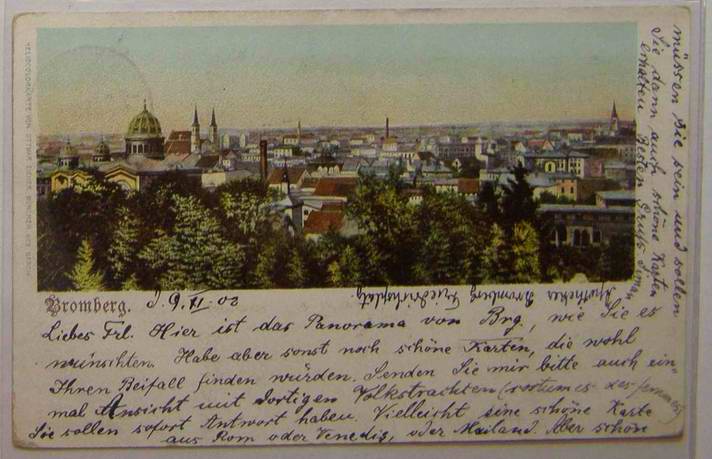 Bromberg. d. 6. VI 02
Liebes Frl. Hier ist das Panorama von Brg, wie Sie es
wünschten. Habe aber sonst noch schöne Karten, die wohl
Ihren Beifall finden würden. Senden Sie mir bitte auch ein-
mal Ansicht mit dortigen Volkstrachten (costumes des femmes)
Sie sollen sofort Antwort haben. Vielleicht eine schöne Karte
aus Rom oder Venedig, oder Mailand. Aber schöne
müssen Sie sein und sollen
Sie dann auch schöne Karten
erhalten Besten Gruss
Apotheker Bromberg Friedrichsplatz